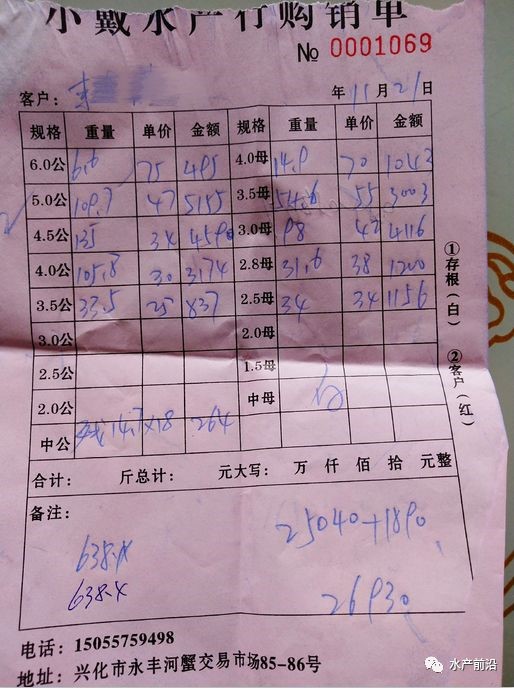 小戴水产行购销单
№ 0001069
客户： 年 11 月 21 日
规格 重量 单价 金额 规格 重量 单价 金额
6.0公 6.6 75 495 4.0母 14.9 70 1042
5.0公 109.7 47 5155 3.5母 54.6 55 3003
4.5公 135 34 4590 3.0母 98 42 4116
4.0公 105.8 30 3174 2.8母 31.6 38 1200
3.5公 33.5 25 837 2.5母 34 34 1156
3.0公 2.0母
2.5公 1.5母
2.0公 中母
中公 14.7×18 264
合计： 斤总计： 元大写： 万 仟 佰 拾 元整
备注：
25040+1890
638.4
638.4
26930
电话：15055759498
地址：兴化市永丰河蟹交易市场85-86号
①存根（白） ②客户（红）
水产前沿